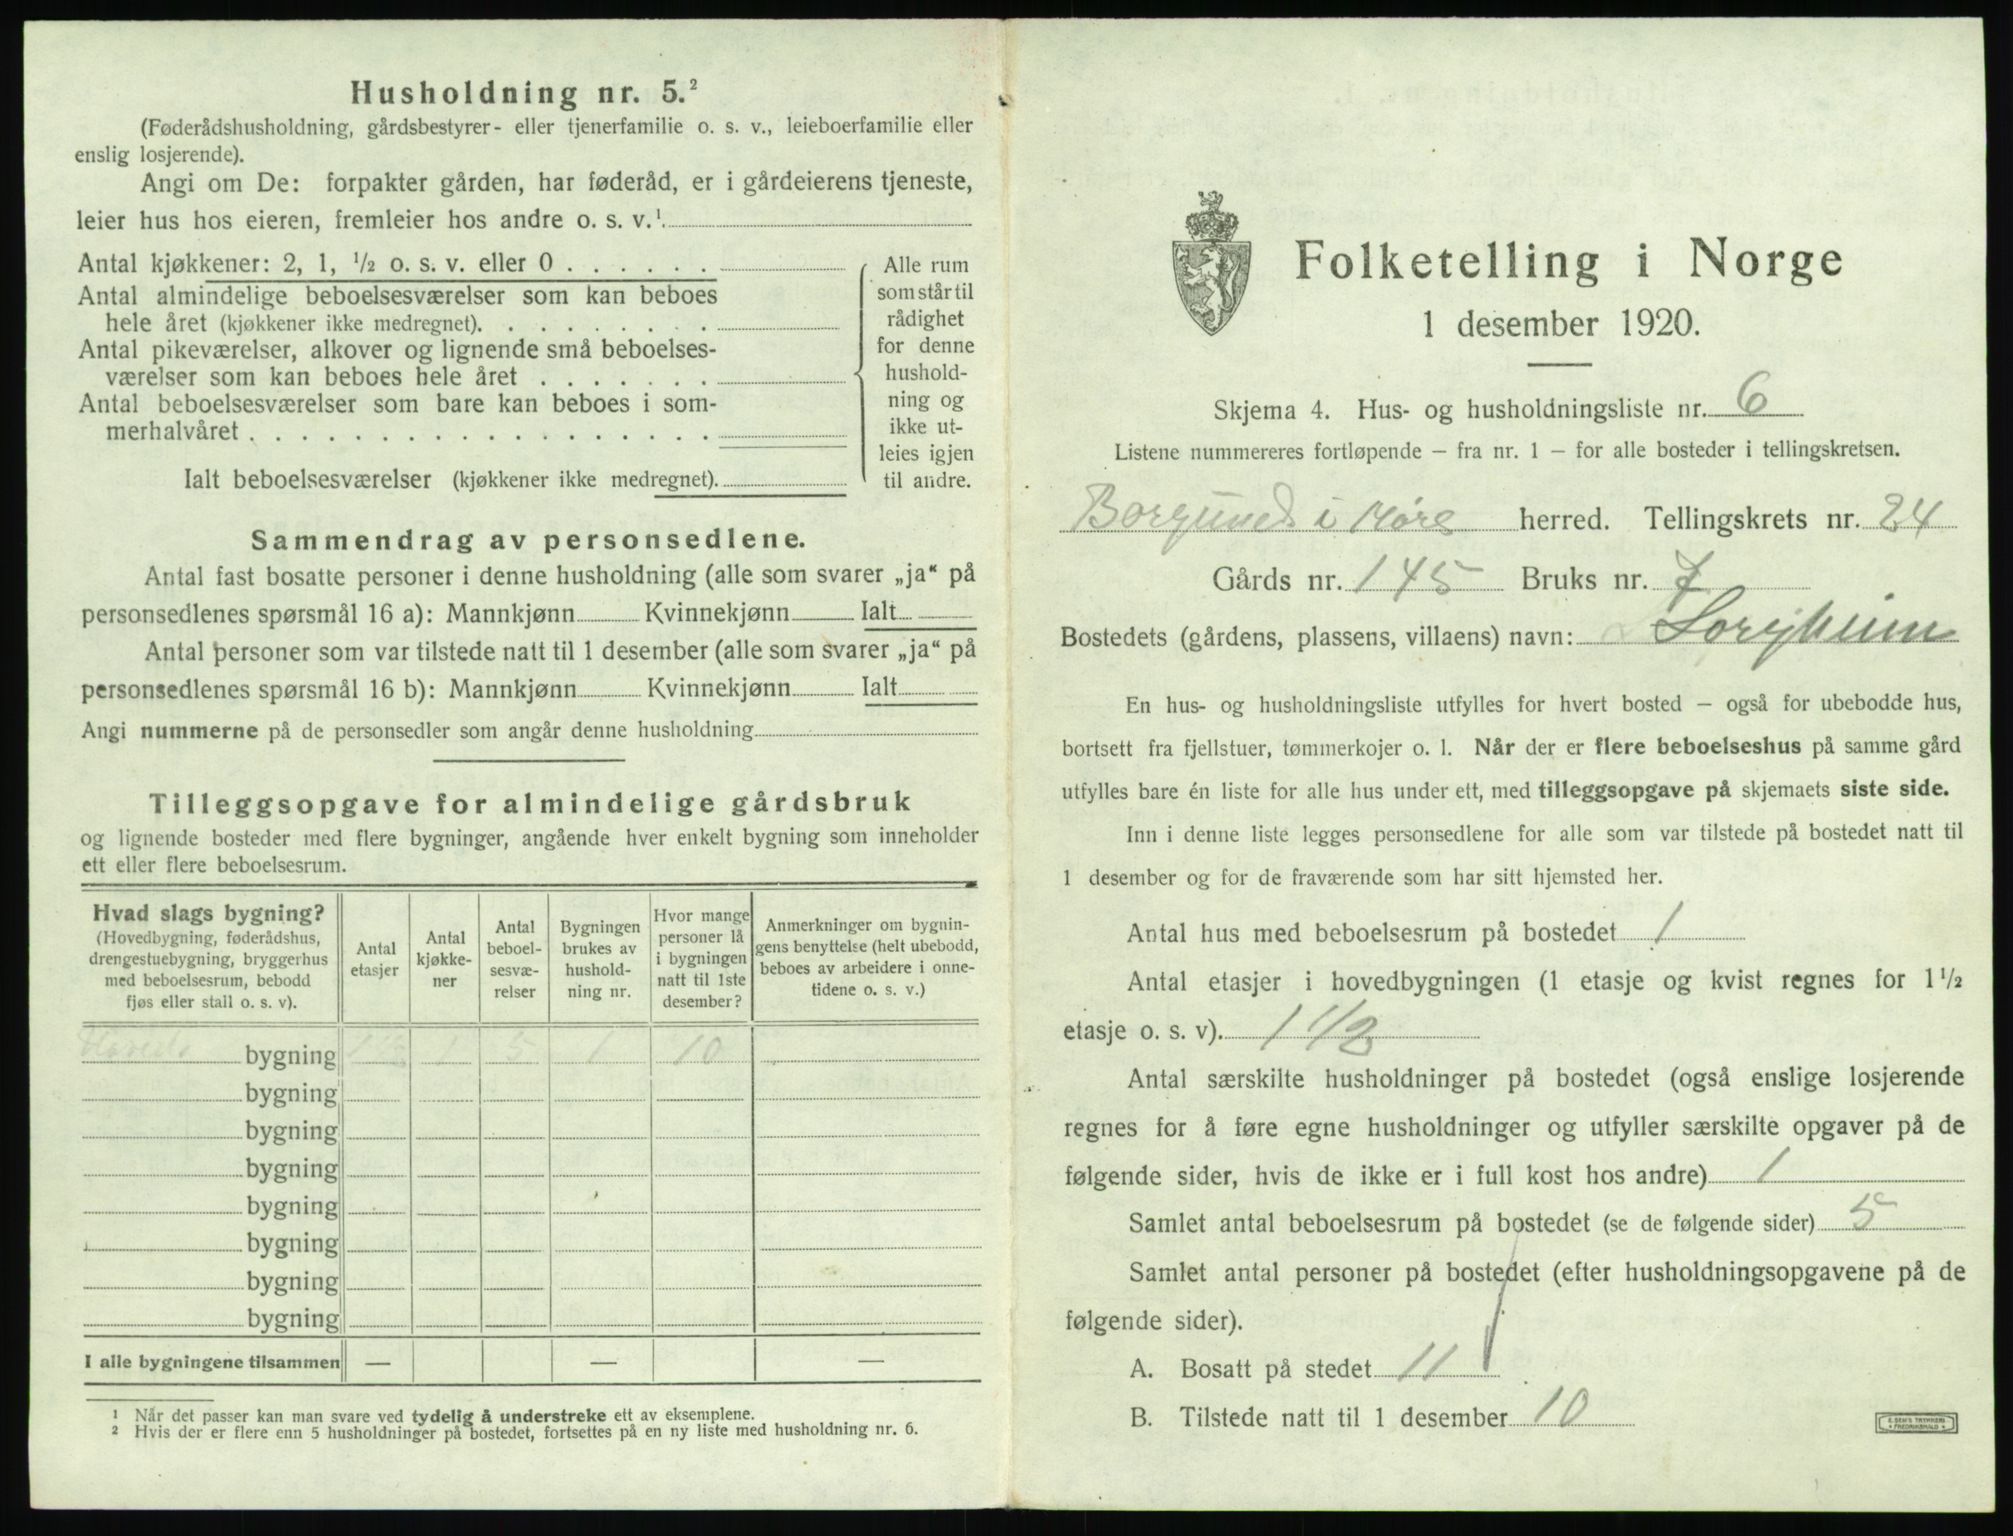 Husholdning nr. 5.²
(Føderådshusholdning, gårdsbestyrer- eller tjenerfamilie o. s. v., leieboerfamilie eller
enslig losjerende).
Angi om De: forpakter gården, har føderåd, er i gårdeierens tjeneste,
leier hus hos eieren, fremleier hos andre o. s. v.¹
Antal kjøkkener: 2, 1, ½ o. s. v. eller 0 . . . . . .
Antal almindelige beboelsesværelser som kan beboes
hele året (kjøkkener ikke medregnet). . . . . . . . .
Antal pikeværelser, alkover og lignende små beboelses-
værelser som kan beboes hele året . . . . . . .
Antal beboelsesværelser som bare kan beboes i som-
merhalvåret . . . . . . . . . . . . . . . . . .
Ialt beboelsesværelser (kjøkkener ikke medregnet).
Alle rum
som står til
rådighet
for denne
hushold-
ning og
ikke ut-
leies igjen
til andre.
Sammendrag av personsedlene.
Antal fast bosatte personer i denne husholdning (alle som svarer „ja“ på
personsedlenes spørsmål 16 a): Mannkjønn Kvinnekjønn Ialt
Antal personer som var tilstede natt til 1 desember (alle som svarer „ja“ på
personsedlenes spørsmål 16 b): Mannkjønn Kvinnekjønn Ialt
Angi nummerne på de personsedler som angår denne husholdning
Tilleggsopgave for almindelige gårdsbruk
og lignende bosteder med flere bygninger, angående hver enkelt bygning som inneholder
ett eller flere beboelsesrum.
Hvad slags bygning?
(Hovedbygning, føderådshus,
drengestuebygning, bryggerhus
med beboelsesrum, bebodd
fjøs eller stall o. s. v).
Antal
etasjer
Antal
kjøkke-
ner
Antal
beboel-
sesvæ-
relser
Bygningen
brukes av
hushold-
ning nr.
Hvor mange
personer lå
i bygningen
natt til 1ste
desember?
Anmerkninger om bygnin-
gens benyttelse (helt ubebodd,
beboes av arbeidere i onne-
tidene o. s. v.)
Hoveds bygning 1½ 1 5 1 10
bygning
bygning
bygning
bygning
bygning
bygning
bygning
I alle bygningene tilsammen — — —
¹ Når det passer kan man svare ved tydelig å understreke ett av eksemplene.
² Hvis der er flere enn 5 husholdninger på bostedet, fortsettes på en ny liste med husholdning nr. 6.
Folketelling i Norge
1 desember 1920.
Skjema 4. Hus- og husholdningsliste nr. 6
Listene nummereres fortløpende — fra nr. 1 — for alle bosteder i tellingskretsen.
Borgund i Møre herred. Tellingskrets nr. 24
Gårds nr. 145 Bruks nr. 7
Bostedets (gårdens, plassens, villaens) navn:
En hus- og husholdningsliste utfylles for hvert bosted — også for ubebodde hus,
bortsett fra fjellstuer, tømmerkojer o. l. Når der er flere beboelseshus på samme gård
utfylles bare én liste for alle hus under ett, med tilleggsopgave på skjemaets siste side.
Inn i denne liste legges personsedlene for alle som var tilstede på bostedet natt til
1 desember og for de fraværende som har sitt hjemsted her.
Antal hus med beboelsesrum på bostedet 1
Antal etasjer i hovedbygningen (1 etasje og kvist regnes for 1½
etasje o. s. v). 1 1/2
Antal særskilte husholdninger på bostedet (også enslige losjerende
regnes for å føre egne husholdninger og utfyller særskilte opgaver på de
følgende sider, hvis de ikke er i full kost hos andre) 1
Samlet antal beboelsesrum på bostedet (se de følgende sider) 5
Samlet antal personer på bostedet (efter husholdningsopgavene på de
følgende sider).
A. Bosatt på stedet 11
B. Tilstede natt til 1 desember 10
E. SEM'S TRYKKERI
FREDRIKSHALD